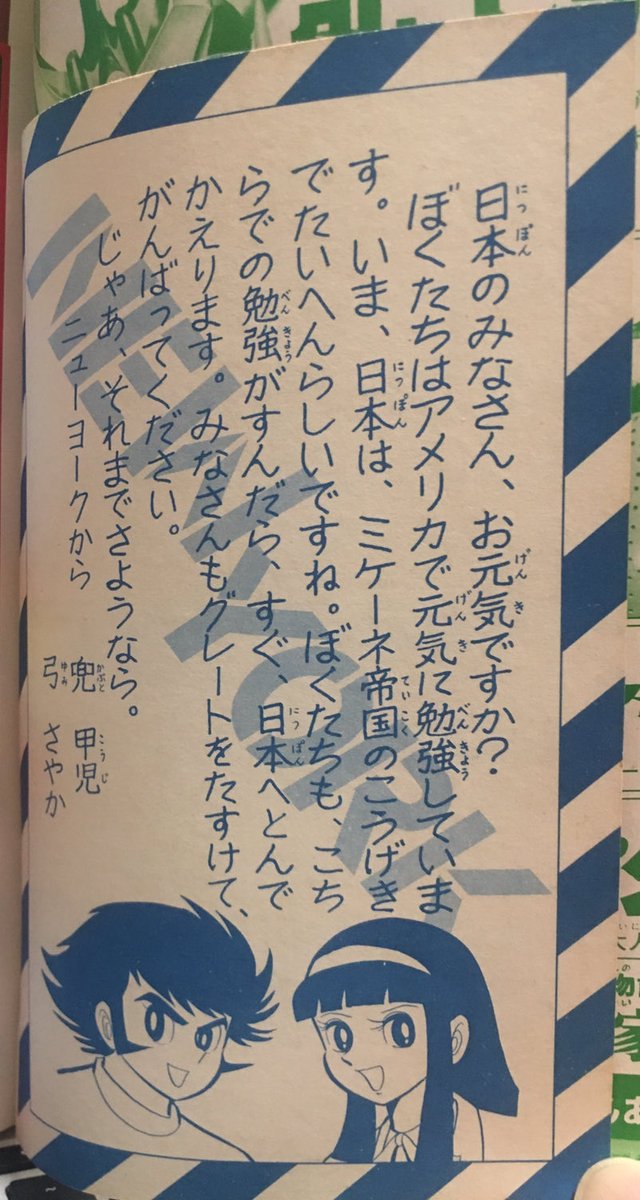 日本のみなさん、お元気ですか?
ぼくたちはアメリカで元気に勉強していま
す。いま、日本は、ミケーネ帝国のこうげき
でたいへんらしいですね。ぼくたちも、こち
らでの勉強がすんだら、すぐ、日本へとんで
かえります。みなさんもグレートをたすけて、
がんばってください。
じゃあ、それまでさようなら。
ニューヨークから
兜 甲児
弓 さやか
NEW YORK